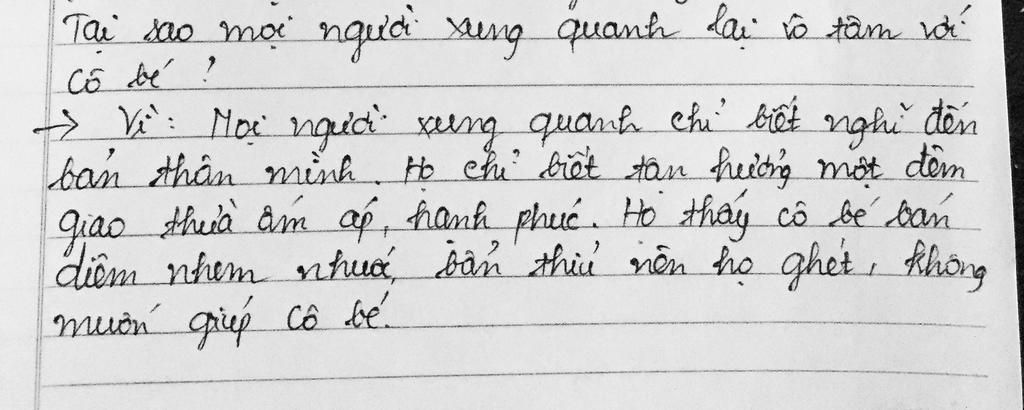 Tại sao mọi người xung quanh lại vô tâm với
cô bé ?
→ Vì : Mọi người xung quanh chỉ biết nghĩ đến
bản thân mình. Họ chỉ biết tận hưởng một đêm
giao thừa ấm áp, hạnh phúc. Họ thấy cô bé bán
diêm nhem nhuốc, bẩn thỉu nên họ ghét, không
muốn giúp cô bé.